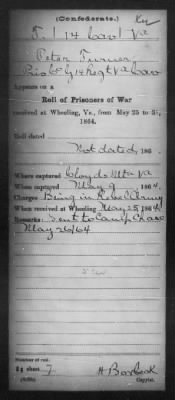 (Confederate.)
T. | 14 Cav | Va
Peter Turner
Co. G 14 Regt Va Cav
Appears on a
Roll of Prisoners of War
received at Wheeling, Va., from May 25 to 31,
1864.
Roll dated
Not dated, 186 .
Where captured Cloyds Mt Va
When captured May 9 , 186 4.
Charges Being in Rebel Army
When received at Wheeling May 25, 186 4
Remarks: Sent to Camp Chase
May 26/64
Number of roll:
sheet 7
Copyist.